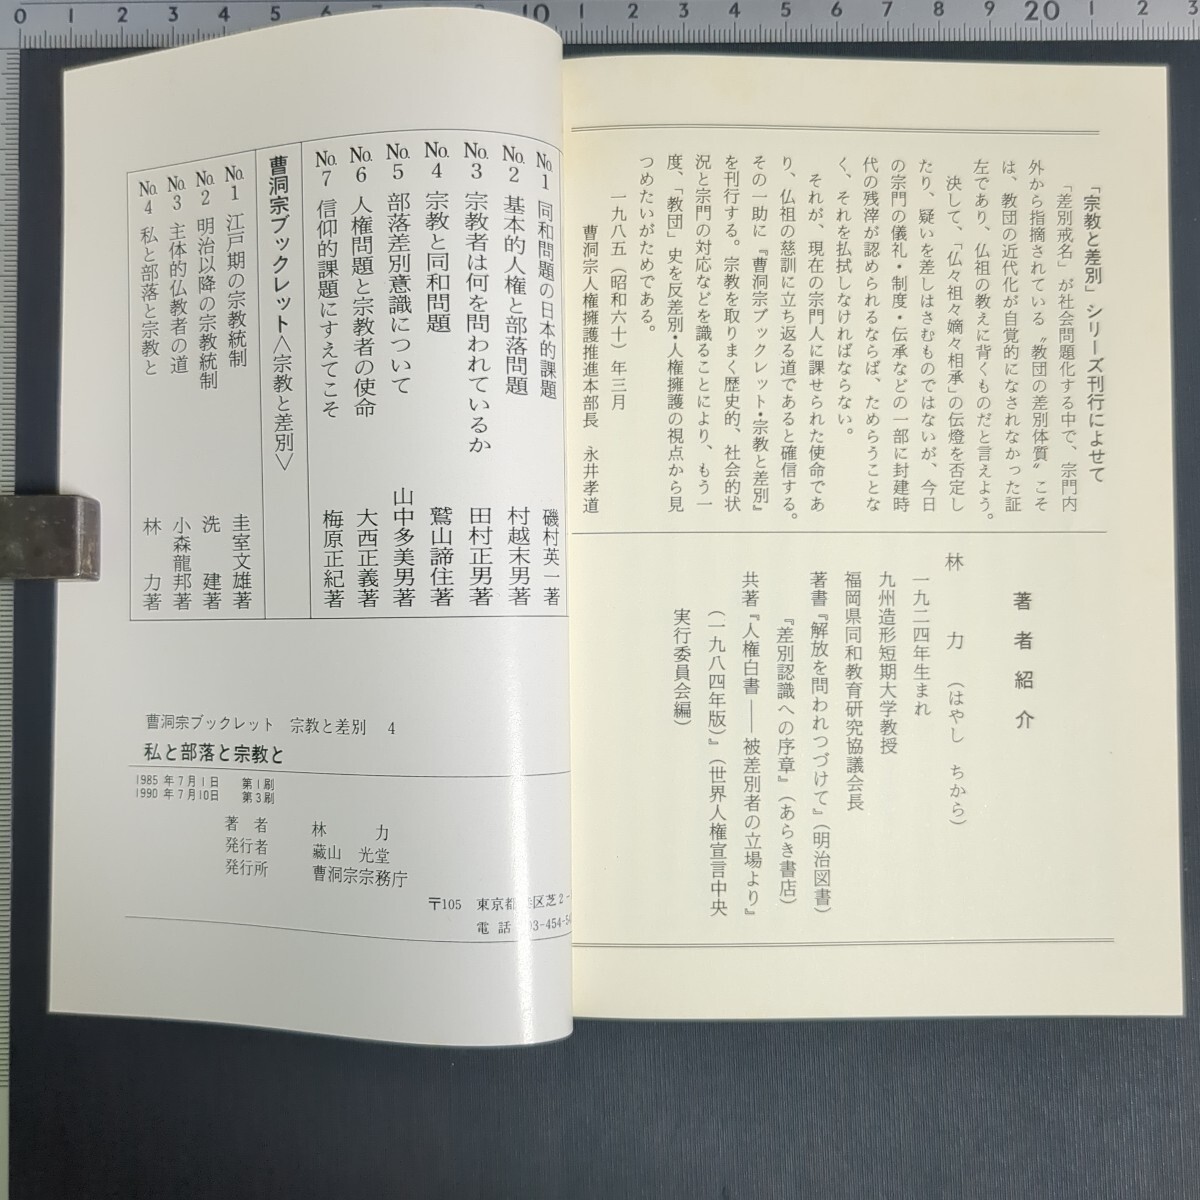 「宗教と差別」シリーズ刊行によせて
「差別戒名」が社会問題化する中で、宗門内
外から指摘されている〝教団の差別体質〟こそ
は、教団の近代化が自覚的になされなかった証
左であり、仏祖の教えに背くものだと言えよう。
決して、「仏々祖々嫡々相承」の伝燈を否定し
たり、疑いを差しはさむものではないが、今日
の宗門の儀礼・制度・伝承などの一部に封建時
代の残滓が認められるならば、ためらうことな
く、それを払拭しなければならない。
それが、現在の宗門人に課せられた使命であ
り、仏祖の慈訓に立ち返る道であると確信する。
その一助に『曹洞宗ブックレット・宗教と差別』
を刊行する。宗教を取りまく歴史的、社会的状
況と宗門の対応などを識ることにより、もう一
度、「教団」史を反差別・人権擁護の視点から見
つめたいがためである。
一九八五（昭和六十）年三月
曹洞宗人権擁護推進本部長　永井孝道
著者紹介
林　力（はやし　ちから）
一九二四年生まれ
九州造形短期大学教授
福岡県同和教育研究協議会長
著書『解放を問われつづけて』（明治図書）
『差別認識への序章』（あらき書店）
共著『人権白書――被差別者の立場より』
（一九八四年版）』（世界人権宣言中央
実行委員会編）
No.1　同和問題の日本的課題　磯村英一著
No.2　基本的人権と部落問題　村越末男著
No.3　宗教者は何を問われているか　田村正男著
No.4　宗教と同和問題　鷲山諦住著
No.5　部落差別意識について　山中多美男著
No.6　人権問題と宗教者の使命　大西正義著
No.7　信仰的課題にすえてこそ　梅原正紀著
曹洞宗ブックレット〈宗教と差別〉
No.1　江戸期の宗教統制　圭室文雄著
No.2　明治以降の宗教統制　洗　建著
No.3　主体的仏教者の道　小森龍邦著
No.4　私と部落と宗教と　林　力著
曹洞宗ブックレット　宗教と差別　4
私と部落と宗教と
1985年7月1日　第1刷
1990年7月10日　第3刷
著者　林　力
発行者　藏山　光堂
発行所　曹洞宗宗務庁
〒105　東京都港区芝2-
電話　03-454-54
0 1 2 3 4 5 6 7 8 9 10 1 2 3 4 5 6 7 8 9 20 1 2 3